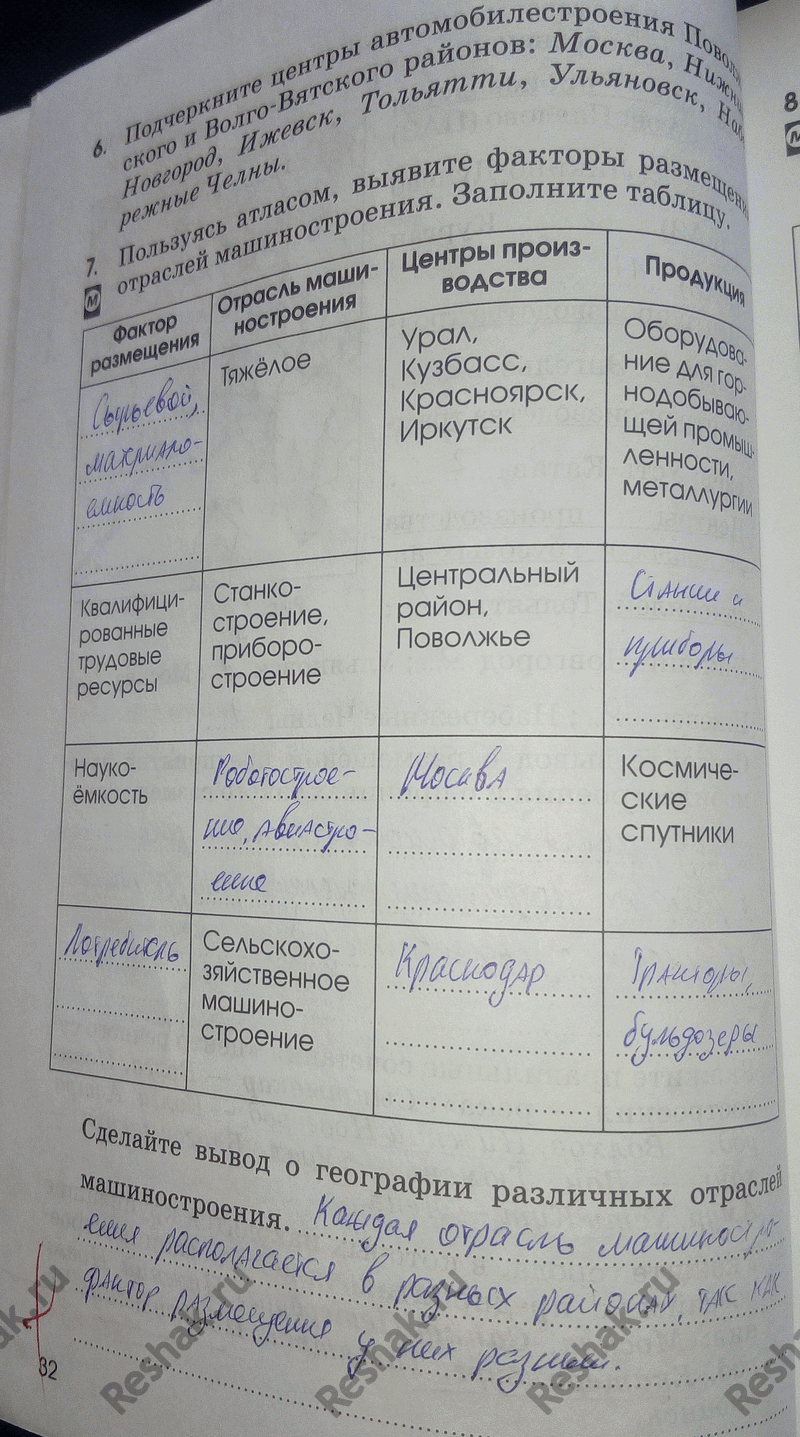 6. Подчеркните центры автомобилестроения Повол
ского и Волго-Вятского районов: Москва, Нижн
Новгород, Ижевск, Тольятти, Ульяновск, Наб
режные Челны.
7. Пользуясь атласом, выявите факторы размещени
м отраслей машиностроения. Заполните таблицу.
Фактор
размещения
Отрасль маши-
ностроения
Центры произ-
водства
Продукция
Сырьевой,
материало-
емкость
Тяжёлое
Урал,
Кузбасс,
Красноярск,
Иркутск
Оборудова-
ние для гор-
нодобываю-
щей промыш-
ленности,
металлургии
Квалифици-
рованные
трудовые
ресурсы
Станко-
строение,
приборо-
строение
Центральный
район,
Поволжье
Станки и
приборы
Науко-
ёмкость
Роботострое-
ние, авиастро-
ение
Москва
Космиче-
ские
спутники
Потребитель
Сельскохо-
зяйственное
машино-
строение
Краснодар
Тракторы,
бульдозеры
Сделайте вывод о географии различных отраслей
машиностроения. Каждая отрасль машиностро-
ения располагается в разных районах, так как
фактор размещения у них разный.
32
Reshak.ru
Reshak.ru
Reshak.ru
8